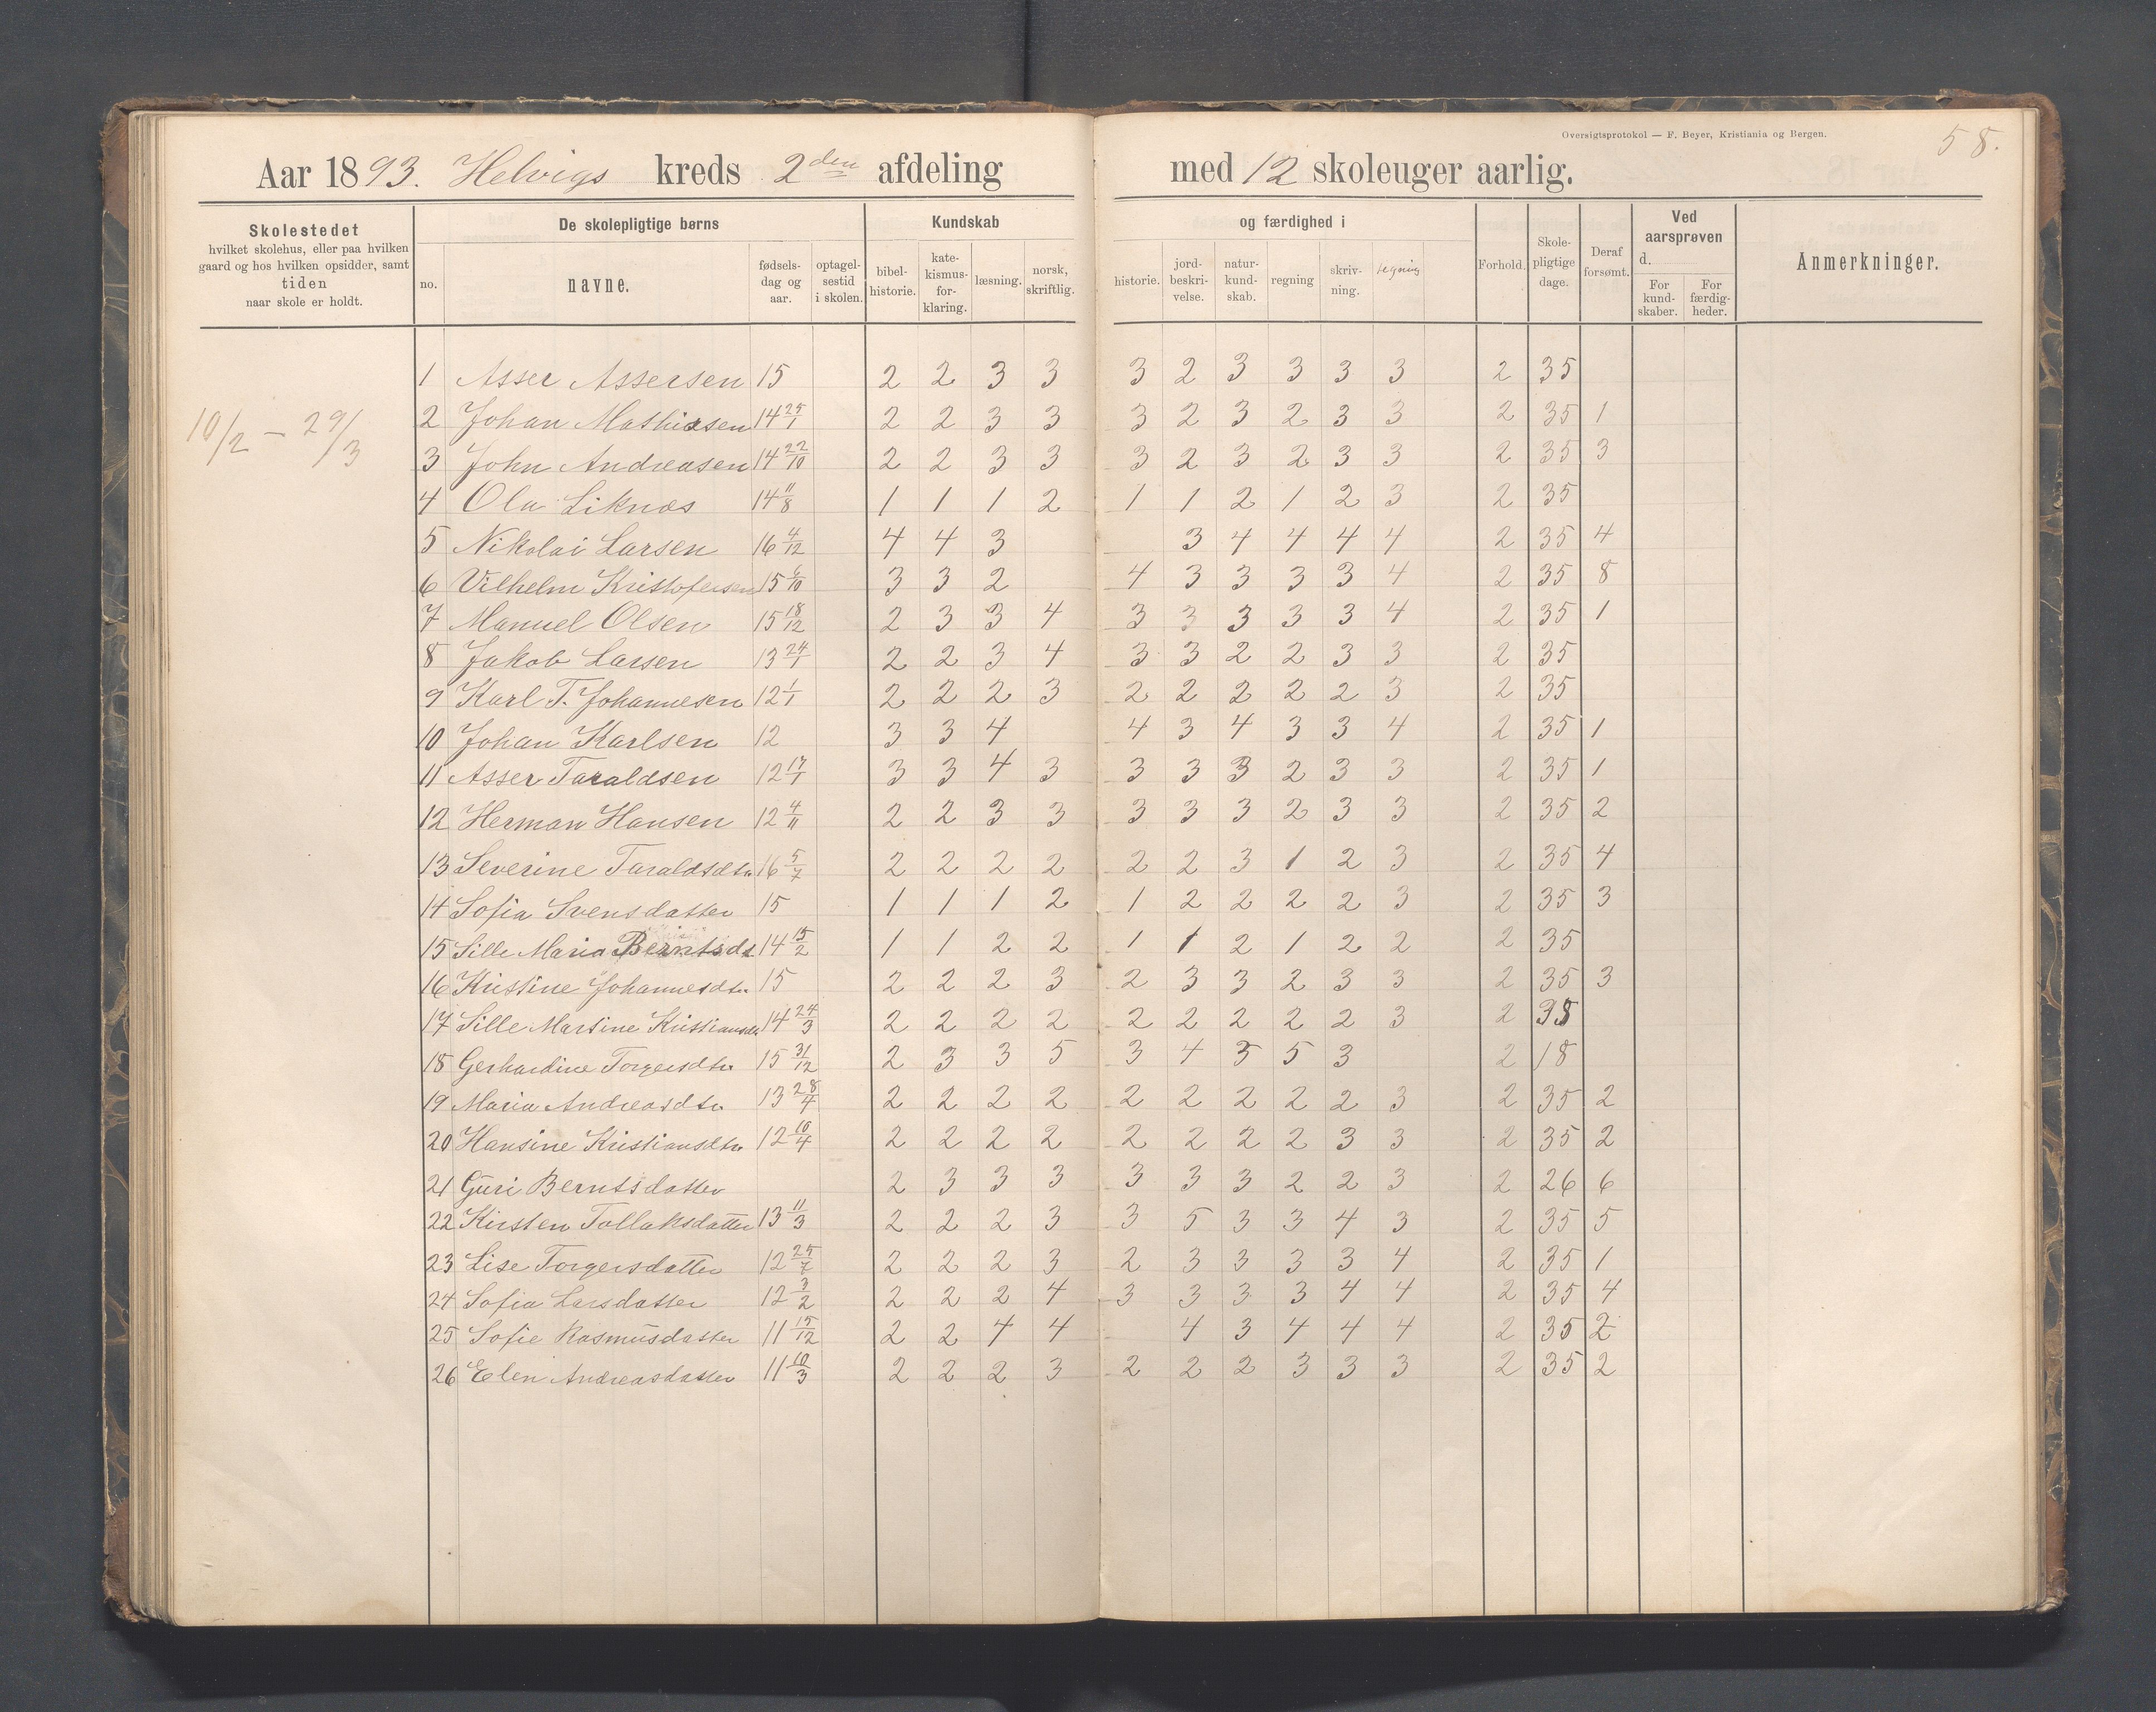 Oversigtsprotokol — F. Beyer, Kristiania og Bergen.
58.
Aar 1893. Helvigs kreds 2den afdeling med 12 skoleuger aarlig.
Skolestedet hvilket skolehus, eller paa hvilken gaard og hos hvilken opsidder, samt tiden naar skole er holdt.
De skolepligtige børns
no. navne. fødsels-dag og aar. optagel-sestid i skolen.
Kundskab og færdighed i
bibel-historie. kate-kismus-for-klaring. læsning. norsk, skriftlig. historie. jord-beskri-velse. natur-kund-skab. regning skriv-ning. tegning
Forhold. Skole-pligtige dage. Deraf forsømt.
Ved aarsprøven d.
For kund-skaber. For færdig-heder.
Anmerkninger.
10/2 – 29/3
1 Asser Assersen 15 2 2 3 3 3 2 3 3 3 3 2 35
2 Johan Mathiasen 14 25/1 2 2 3 3 3 2 3 2 3 3 2 35 1
3 John Andreasen 14 22/10 2 2 3 3 3 2 3 2 3 3 2 35 3
4 Ola Liknæs 14 11/8 1 1 1 2 1 1 2 1 2 3 2 35
5 Nikolai Larsen 16 4/12 4 4 3 3 4 4 4 4 2 35 4
6 Vilhelm Kristofersen 15 6/10 3 3 2 4 3 3 3 3 4 2 35 8
7 Manuel Olsen 15 18/12 2 3 3 4 3 3 3 3 3 4 2 35 1
8 Jakob Larsen 13 24/1 2 2 3 4 3 3 2 2 3 3 2 35
9 Karl T. Johannesen 12 1/1 2 2 2 3 2 2 2 2 2 3 2 35
10 Johan Karlsen 12 3 3 4 4 3 4 3 3 4 2 35 1
11 Asser Taraldsen 12 17/1 3 3 4 3 3 3 3 2 3 3 2 35 1
12 Herman Hansen 12 4/11 2 2 3 3 3 3 3 2 3 3 2 35 2
13 Severine Taraldsdtr 16 5/7 2 2 2 2 2 2 3 1 2 3 2 35 4
14 Sofia Svensdatter 15 1 1 1 2 1 2 2 2 2 3 2 35 3
15 Sille Maria Berntsdt 14 15/2 1 1 2 2 1 1 2 1 2 2 2 35
16 Kristine Johannesdtr 15 2 2 2 3 2 3 3 2 3 3 2 35 3
17 Sille Martine Kristiansdtr 14 24/3 2 2 2 2 2 2 2 2 2 3 2
18 Gerhardine Torgersdtr 15 31/12 2 3 3 5 3 4 3 5 3 2 18
19 Maria Andreasdtr 13 28/4 2 2 2 2 2 2 2 2 2 3 2 35 2
20 Hansine Kristiansdtr 12 10/4 2 2 2 2 2 2 2 2 3 3 2 35 2
21 Guri Berntsdatter 2 3 3 3 3 3 3 2 2 3 2 26 6
22 Kirsten Tollaksdatter 13 11/3 2 2 2 3 3 5 3 3 4 3 2 35 5
23 Lise Torgersdatter 12 25/7 2 2 2 3 2 3 3 3 3 4 2 35 1
24 Sofia Larsdatter 12 3/2 2 2 2 4 3 3 3 3 4 4 2 35 4
25 Sofie Rasmusdatter 11 15/12 2 2 4 4 4 3 4 4 4 2 35 2
26 Elen Andreasdatter 11 10/3 2 2 2 3 2 2 2 3 3 3 2 35 2